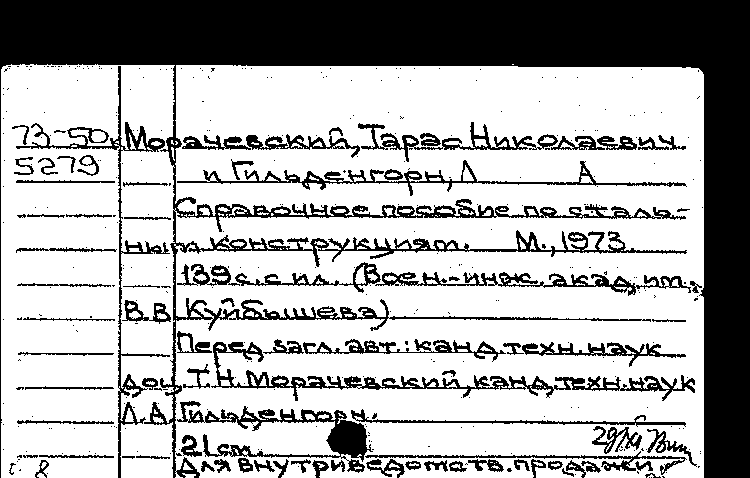 73-50к Морачевский, Тарас Николаевич
5279 и Гильденгорн, Л А
Справочное пособие по сталь-
ным конструкциям. М., 1973.
139 с. с ил. (Воен.-инж. акад. им.
В.В. Куйбышева).
Перед загл. авт.: канд. техн. наук
доц. Т.Н. Морачевский, канд. техн. наук
Л.А. Гильденгорн.
21 см.
Для внутриведомств. продажи.